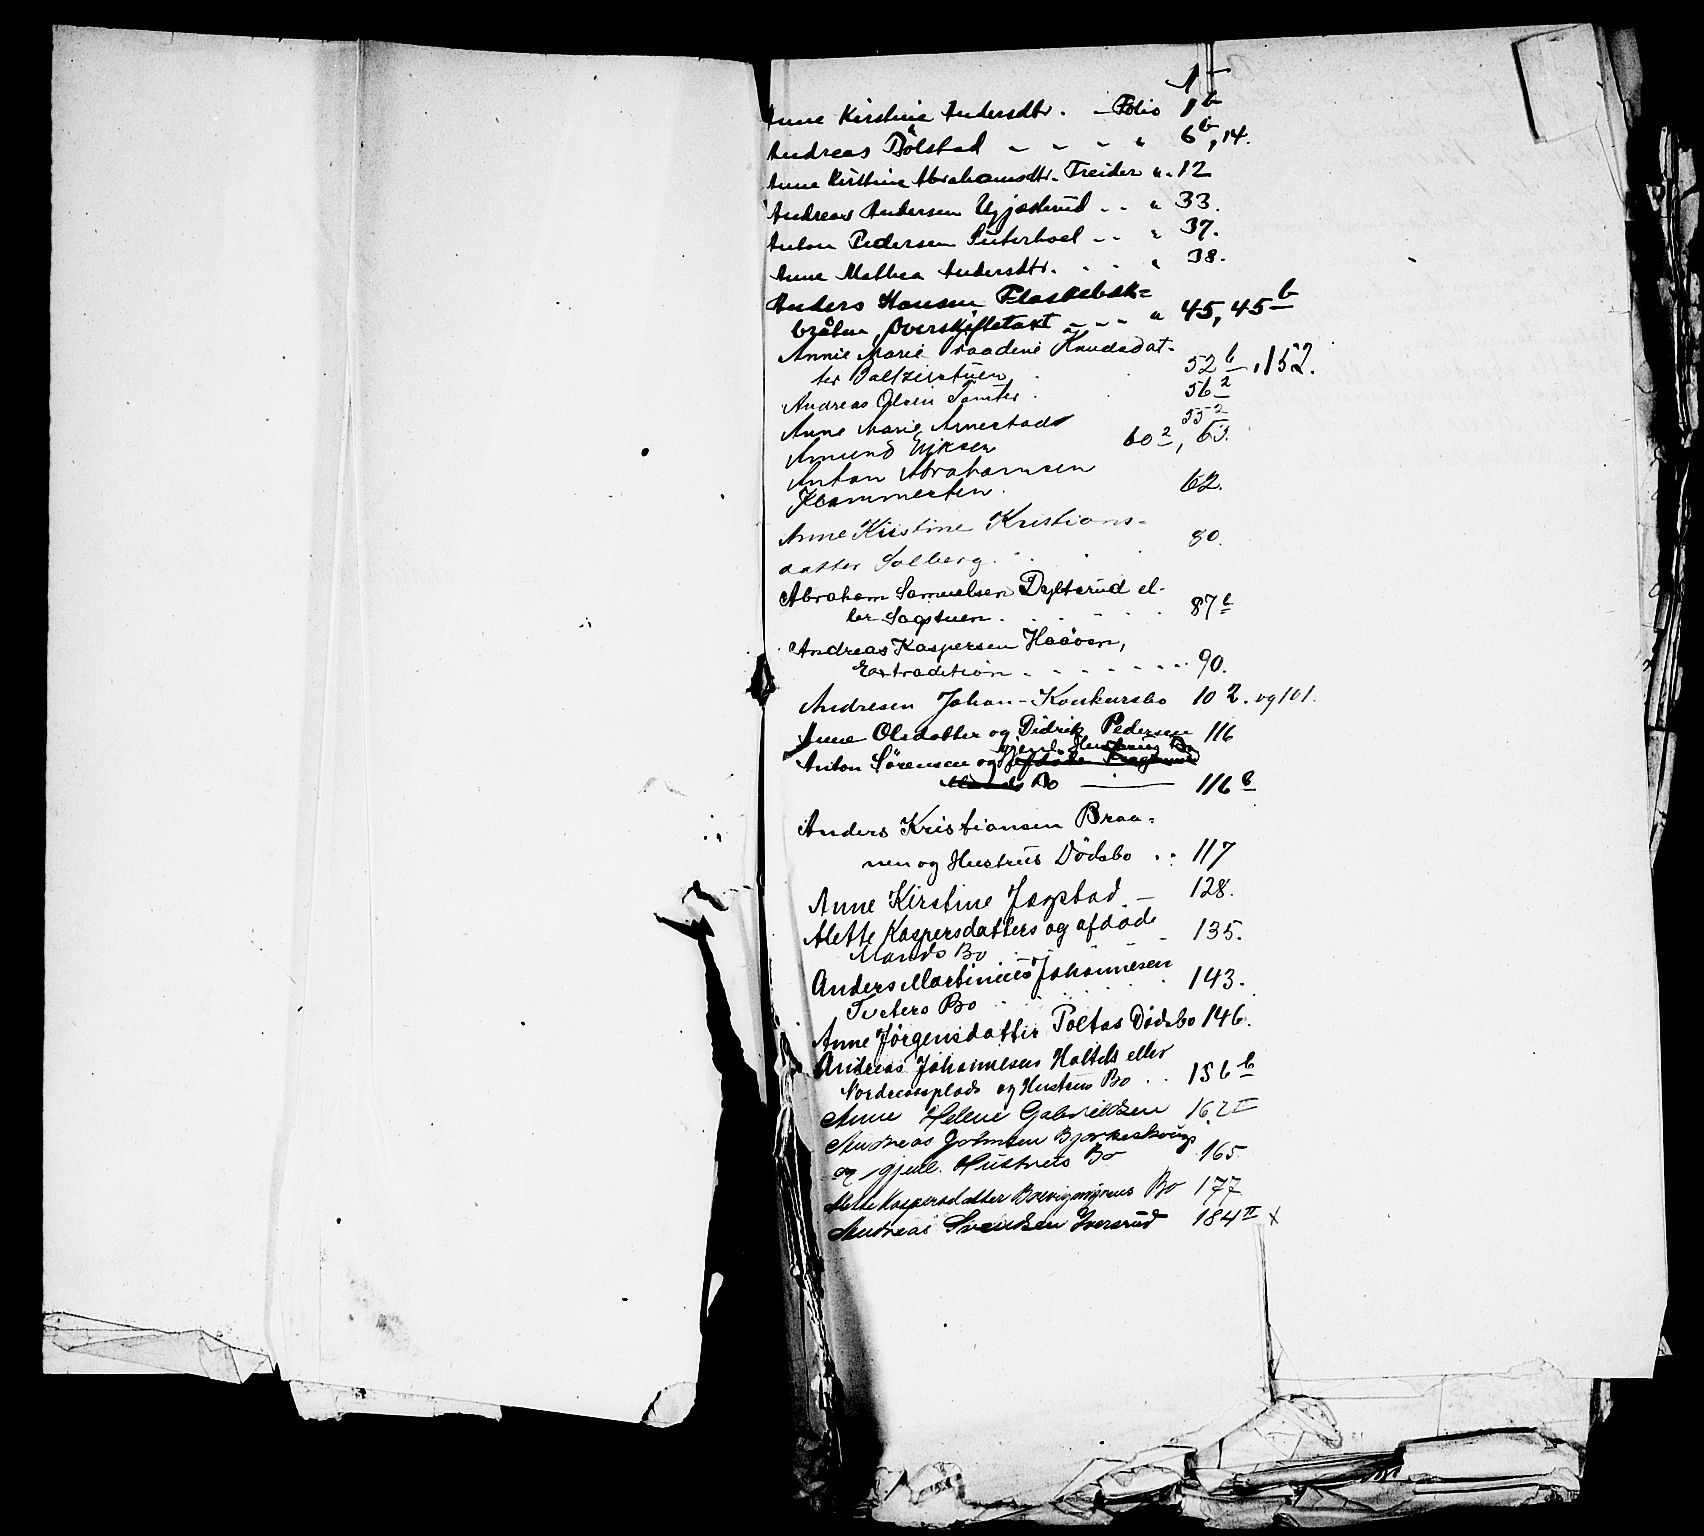 Anne Kirstine Andersdtr. - Folio 1b
Andreas Bølstad - - - " 6b, 14.
Anne Kirstine Abrahamsdtr. Treider ". 12
Andreas Andersen - - " 33.
Anton Pedersen - - " 37.
Anne Mathea Andersdtr. - - " 38.
Anders Hansen Flaskebæk=
bråten, Overskiftetakt - - - " 45, 45b
Annie Marie Knudsdat-
ter 52b, 152.
Andreas Olsen Tomter 56 2
Anne Marie Arnestads 55 2
Amund 60 2, 63.
Anton Abrahamsen
62.
Anne Kirstine Kristians=
datter Solberg. 80.
Abraham Samuelsen Dylterud el-
ler Sagstuen. 87b
Andreas Kaspersen Haaøen,
Extradition - - - 90.
Andresen Johan - Konkursbo 102. og 101.
Anne Olsdatter og Didrik Pedersen 116
gjenl. Hustrus Bo
Anton Sørensen og afdøde
Mands Bo — 116b
Anders Kristiansen Braa=
nen og Hustrus Dødsbo .. 117
Anne Kirstine Jøgstad - 128.
Alette Kaspersdatters og afdøde
Mands Bo 135.
Anders Martinius Johannesen
Tveters Bo 143.
Anne Jørgensdatter Poltas Dødsbo 146.
Andreas Johannesens eller
og Hustrus Bo .. 156b
Anne Helene Gabrielsen 162 II
Andreas Johnsen
og gjenl. Hustrus Bo 165.
Mette Kaspersdatter Bo 177
Andreas Svendsen Iversrud 184 II x